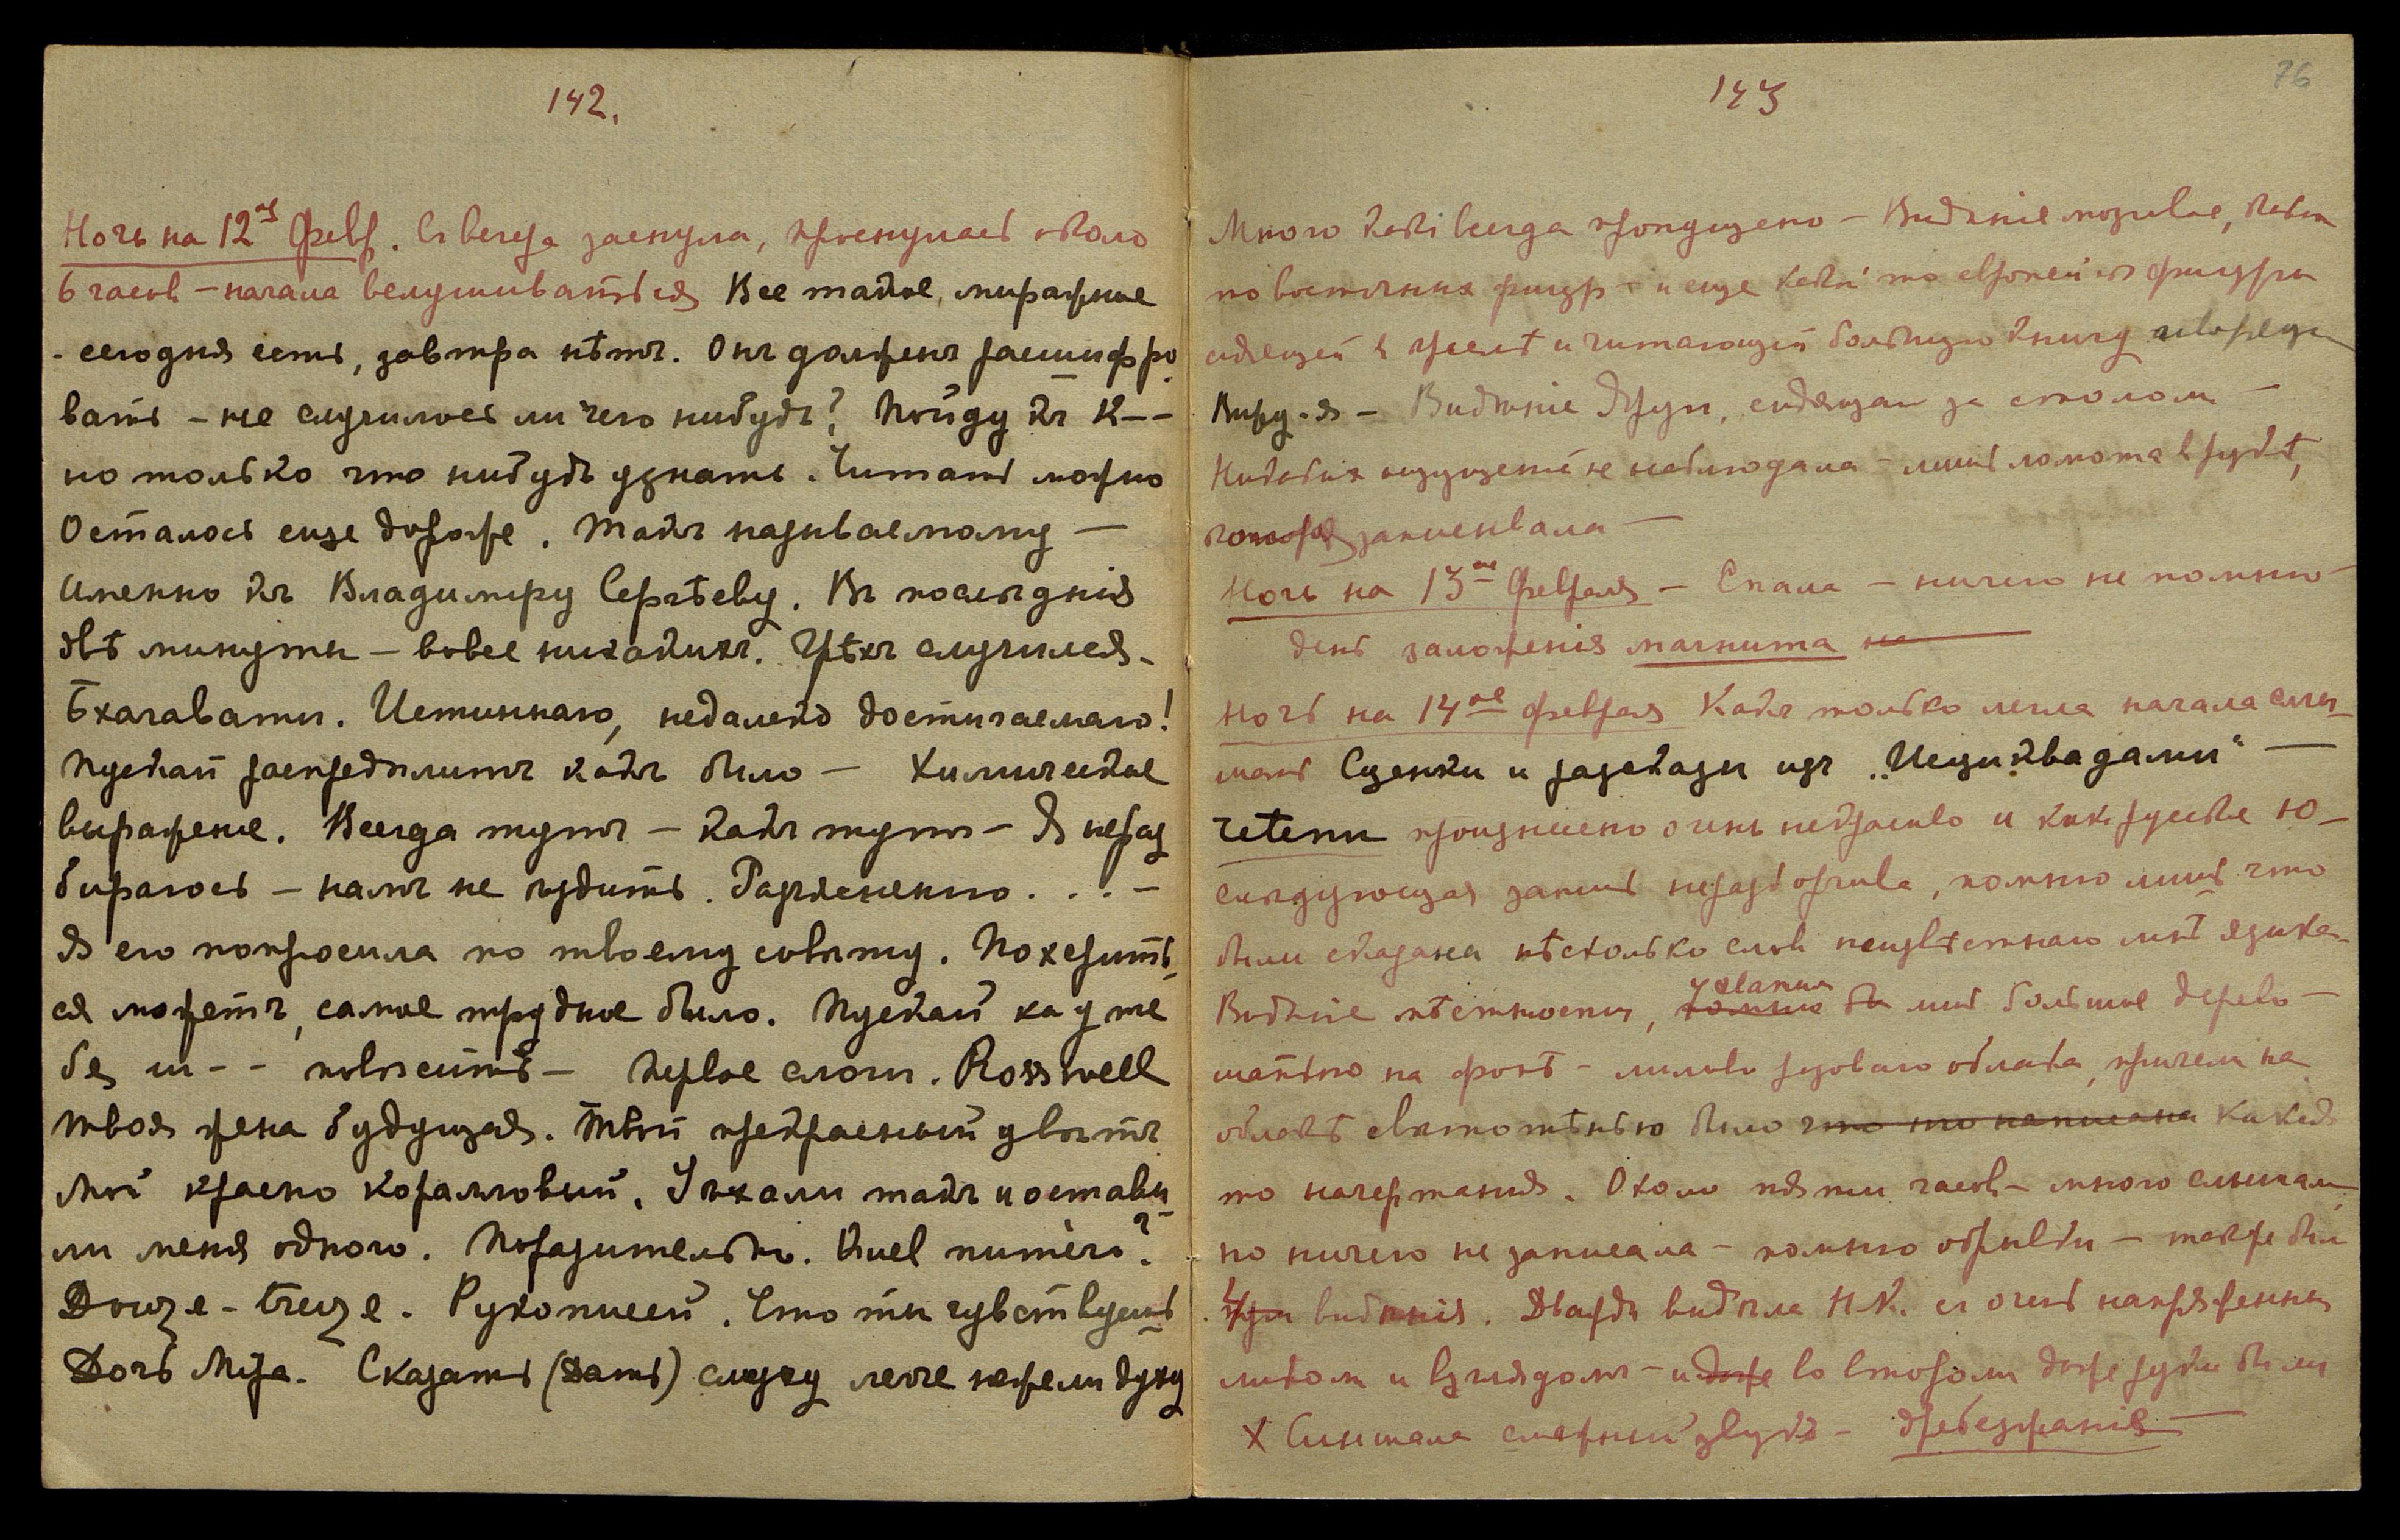 142.
Ночь на 12ое Февр. Съ вечера заснула, проснулась около
6 часов – начала вслушиваться Все такое, миражное
- сегодня есть, завтра нѣтъ. Онъ долженъ расшифро
вать – не случилось ли чего нибудь? Пойду къ К--
но только что нибудь узнать. Читать можно
Осталось еще дороже. Такъ называемому –
Именно къ Владимиру Сергѣеву. Въ послѣднія
двѣ минуты – вовсе никакихъ. Грѣхъ случился.
Бхагавати. Истиннаго, недалеко достигаемаго!
Пускай распредѣлитъ какъ было – Химическое
выражение. Всегда тутъ – какъ тутъ – Я нераз
бираюсь – намъ не чудить. Разъяснению . . . –
Я его попросила по твоему совѣту. Похерить
ся можетъ, самое трудное было. Пускай
бя ш-- – Первое слоги. Rosswell
твоя жена будущая. Твой прекрасный цвѣтъ
Мой красно коралловый. Уѣхали такъ и остави
ли меня одного. Поразительно. Quel numéro?
Douze – treize. Рукописей. Что ты чувствуешь
Дочь Міра. Сказать (Дать) слугу легче нежели духу
143
76
Много какъ всегда пропущено – Видѣніе мозговое,
по восточных фигур – и еще какой то европейск фигуры
сидящей в креслѣ и читающей большую книгу
Виру-я – Видѣніе сидящая за столом –
Никаких ощущеній не наблюдала – лишь ломота в рукѣ,
которой записывала –
Ночь на 13ое Февраля – Спала – ничего не помню –
день заложенія магнита на
Ночь на 14ое февраля Какъ только легла начала слы
шать Сценки и разсказы изъ „Исциквадами“ –
четепи произнесено очень некрасиво и какъ русское Ю –
слѣдующая запись неразборчива, помню лишь что
были сказана нѣсколько слов неизвѣстнаго мнѣ языка.
Видѣніе мѣстности, помню больше дерево –
на фонѣ – лилово розоваго облака, причем на
облакѣ свѣтотѣнью было что то написана какая
то начертанія. Около пяти часов – много слышала
но ничего не записала – помню обрывки – также были
видѣнія. Дважды видѣла Н.К. съ очень напряженным
ликом и взглядомъ – и даже во втором даже руки были
х Слышала звукъ – дребезжанія –